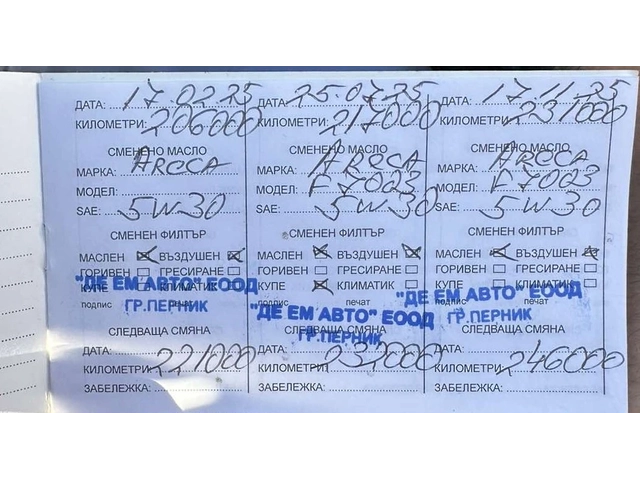 ДАТА: 17.02.25
КИЛОМЕТРИ: 206000
СМЕНЕНО МАСЛО
МАРКА: ARECA
МОДЕЛ:
SAE: 5W30
СМЕНЕН ФИЛТЪР
МАСЛЕН ВЪЗДУШЕН
ГОРИВЕН ГРЕСИРАНЕ
КУПЕ КЛИМАТИК
подпис печат
"ДЕ ЕМ АВТО" ЕООД
ГР.ПЕРНИК
СЛЕДВАЩА СМЯНА
ДАТА:
КИЛОМЕТРИ: 221000
ЗАБЕЛЕЖКА:
ДАТА: 25.07.25
КИЛОМЕТРИ: 217000
СМЕНЕНО МАСЛО
МАРКА: ARECA
МОДЕЛ: F7003
SAE: 5W30
СМЕНЕН ФИЛТЪР
МАСЛЕН ВЪЗДУШЕН
ГОРИВЕН ГРЕСИРАНЕ
КУПЕ КЛИМАТИК
подпис печат
"ДЕ ЕМ АВТО" ЕООД
ГР.ПЕРНИК
СЛЕДВАЩА СМЯНА
ДАТА:
КИЛОМЕТРИ: 232000
ЗАБЕЛЕЖКА:
ДАТА: 17.11.25
КИЛОМЕТРИ: 231000
СМЕНЕНО МАСЛО
МАРКА: ARECA
МОДЕЛ: F7003
SAE: 5W30
СМЕНЕН ФИЛТЪР
МАСЛЕН ВЪЗДУШЕН
ГОРИВЕН ГРЕСИРАНЕ
КУПЕ КЛИМАТИК
подпис печат
"ДЕ ЕМ АВТО" ЕООД
ГР.ПЕРНИК
СЛЕДВАЩА СМЯНА
ДАТА:
КИЛОМЕТРИ: 246000
ЗАБЕЛЕЖКА: